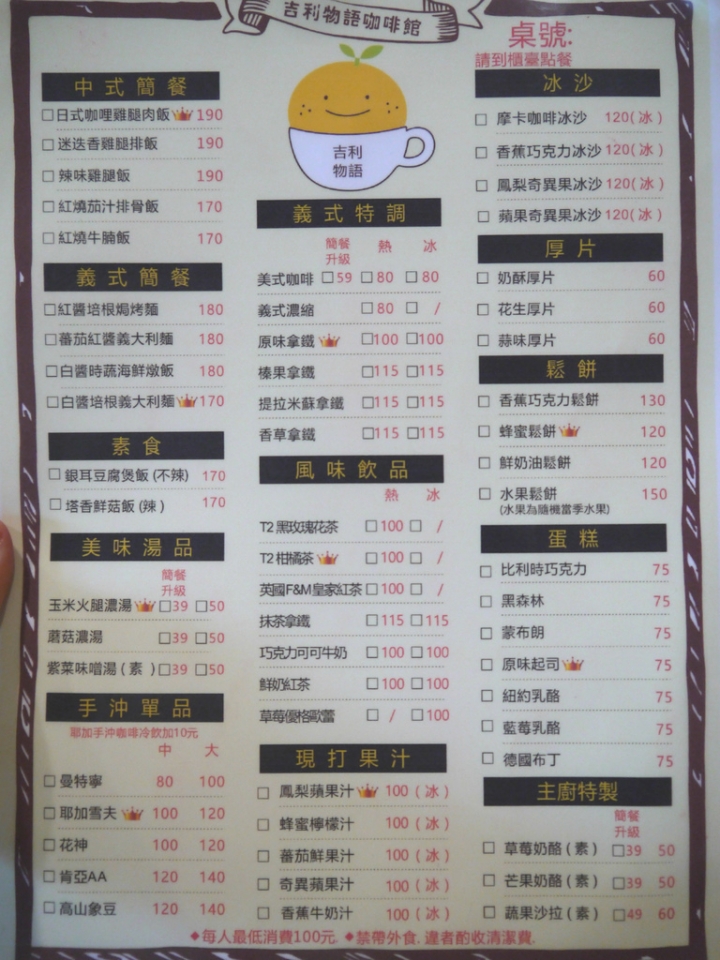 吉利物語咖啡館
桌號:
請到櫃臺點餐
吉利
物語
中式簡餐
日式咖哩雞腿肉飯 190
迷迭香雞腿排飯 190
辣味雞腿飯 190
紅燒茄汁排骨飯 170
紅燒牛腩飯 170
義式簡餐
紅醬培根焗烤麵 180
蕃茄紅醬義大利麵 180
白醬時蔬海鮮燉飯 180
白醬培根義大利麵 170
素食
銀耳豆腐煲飯(不辣) 170
塔香鮮菇飯(辣) 170
美味湯品
簡餐
升級
玉米火腿濃湯 39 50
蘑菇濃湯 39 50
紫菜味噌湯(素) 39 50
手沖單品
耶加手沖咖啡冷飲加10元
中 大
曼特寧 80 100
耶加雪夫 100 120
花神 100 120
肯亞AA 120 140
高山象豆 120 140
義式特調
簡餐
升級 熱 冰
美式咖啡 59 80 80
義式濃縮 80 /
原味拿鐵 100 100
榛果拿鐵 115 115
提拉米蘇拿鐵 115 115
香草拿鐵 115 115
風味飲品
熱 冰
T2黑玫瑰花茶 100 /
T2柑橘茶 100 /
英國F&M皇家紅茶 100 /
抹茶拿鐵 115 115
巧克力可可牛奶 100 100
鮮奶紅茶 100 100
草莓優格歐蕾 / 100
現打果汁
鳳梨蘋果汁 100(冰)
蜂蜜檸檬汁 100(冰)
蕃茄鮮果汁 100(冰)
奇異蘋果汁 100(冰)
香蕉牛奶汁 100(冰)
冰沙
摩卡咖啡冰沙 120(冰)
香蕉巧克力冰沙 120(冰)
鳳梨奇異果冰沙 120(冰)
蘋果奇異果冰沙 120(冰)
厚片
奶酥厚片 60
花生厚片 60
蒜味厚片 60
鬆餅
香蕉巧克力鬆餅 130
蜂蜜鬆餅 120
鮮奶油鬆餅 120
水果鬆餅 150
(水果為隨機當季水果)
蛋糕
比利時巧克力 75
黑森林 75
蒙布朗 75
原味起司 75
紐約乳酪 75
藍莓乳酪 75
德國布丁 75
主廚特製
簡餐
升級
草莓奶酪(素) 39 50
芒果奶酪(素) 39 50
蔬果沙拉(素) 49 60
◆每人最低消費100元. ◆禁帶外食, 違者酌收清潔費.